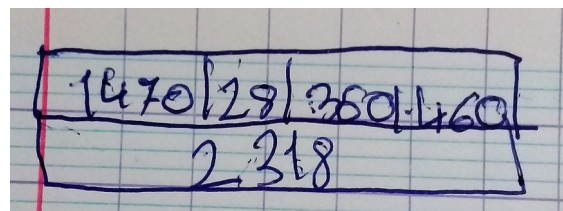 1470|28|360|460
2318